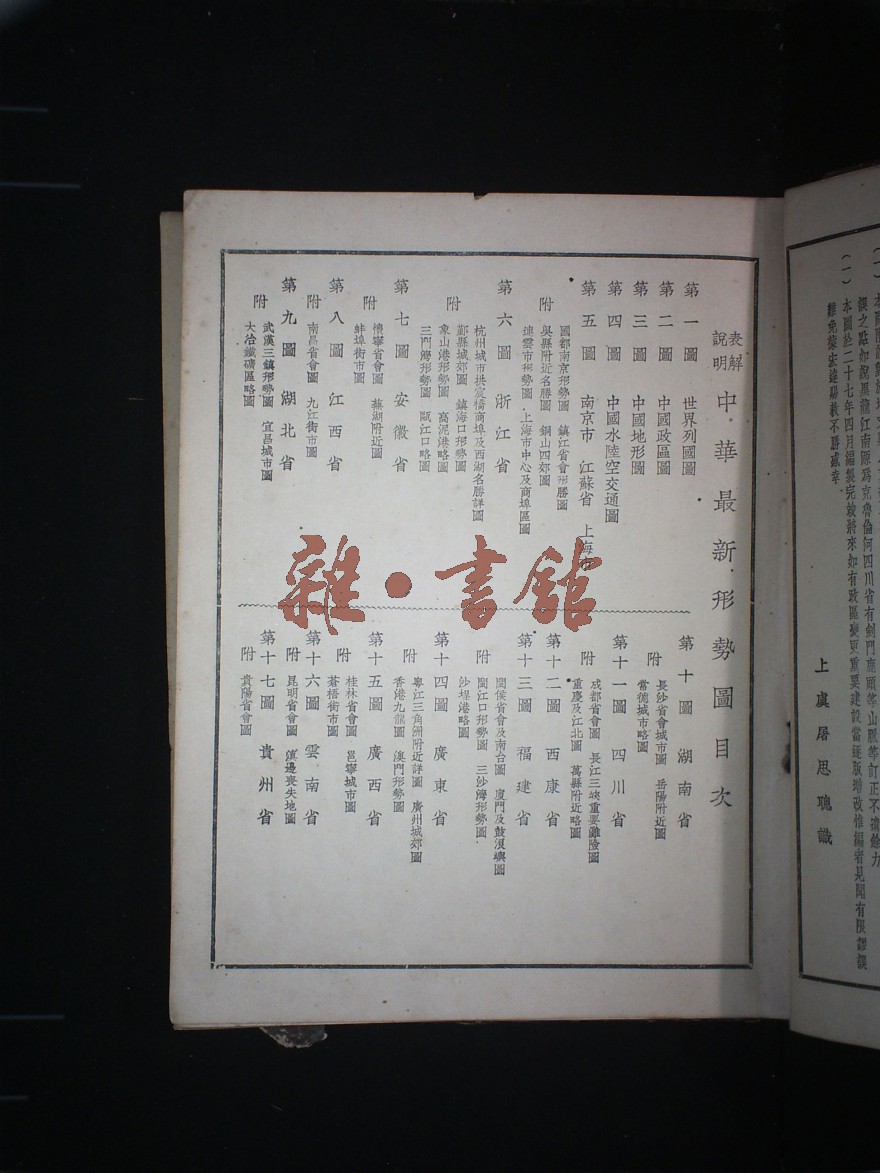 表解說明 中華最新形勢圖目次
第一圖 世界列國圖
第二圖 中國政區圖
第三圖 中國地形圖
第四圖 中國水陸空交通圖
第五圖 南京市 江蘇省 上海
國都南京形勢圖 鎮江省會形勝圖
附 吳縣附近名勝圖 銅山四郊圖
連雲市形勢圖 上海市中心及商埠區圖
第六圖 浙江省
杭州城市拱宸橋商埠及西湖名勝詳圖
附 鄞縣城郊圖 鎮海口形勢圖
象山港形勢圖 高泥港略圖
三門灣形勢圖 甌江口略圖
第七圖 安徽省
附 懷寧省會圖 蕪湖附近圖
蚌埠街市圖
第八圖 江西省
附 南昌省會圖 九江街市圖
第九圖 湖北省
附 武漢三鎮形勢圖 宜昌城市圖
大冶鐵礦區略圖
第十圖 湖南省
附 長沙省會城市圖 岳陽附近圖
常德城市略圖
第十一圖 四川省
附 成都省會圖 長江三峽重要灘險圖
重慶及江北圖 萬縣附近略圖
第十二圖 西康省
第十三圖 福建省
閩侯省會及南台圖 廈門及鼓浪嶼圖
附 閩江口形勢圖 三沙灣形勢圖
沙埕港略圖
第十四圖 廣東省
附 粵江三角洲附近詳圖 廣州城郊圖
香港九龍圖 澳門形勢圖
第十五圖 廣西省
附 桂林省會圖 邕寧城市圖
蒼梧街市圖
第十六圖 雲南省
附 昆明省會圖 滇邊喪失地圖
第十七圖 貴州省
附 貴陽省會圖
雜·書館
(一)
誤之點如說黑龍江南源為克魯倫河四川省有劍門鹿頭等山脈等訂正不遺餘力
(一) 本圖於二十七年四月編製完竣將來如有政區變更重要建設當逐版增改惟編者見聞有限謬誤
難免 賜教不勝感幸
上虞屠思聰識